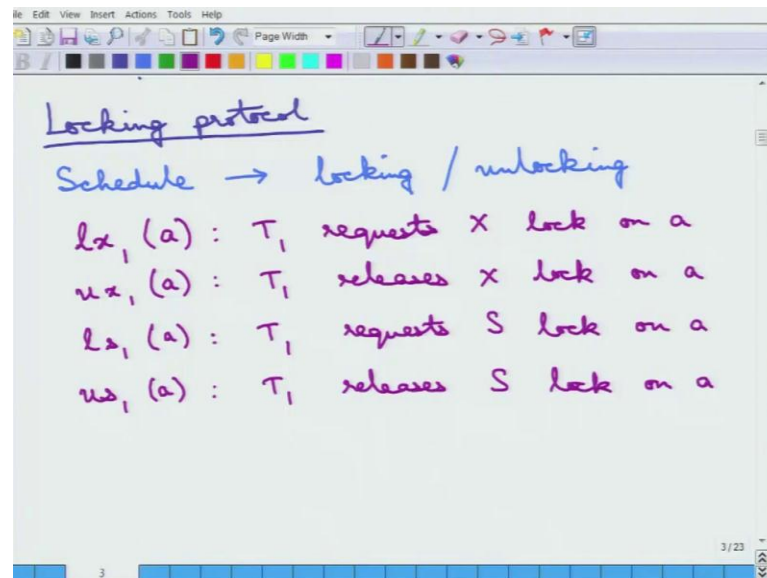 ile Edit View Insert Actions Tools Help
Page Width
B I
Locking protocol
Schedule → locking / unlocking
lx₁ (a) : T₁ requests X lock on a
ux₁ (a) : T₁ releases X lock on a
ls₁ (a) : T₁ requests S lock on a
us₁ (a) : T₁ releases S lock on a
3/23
3